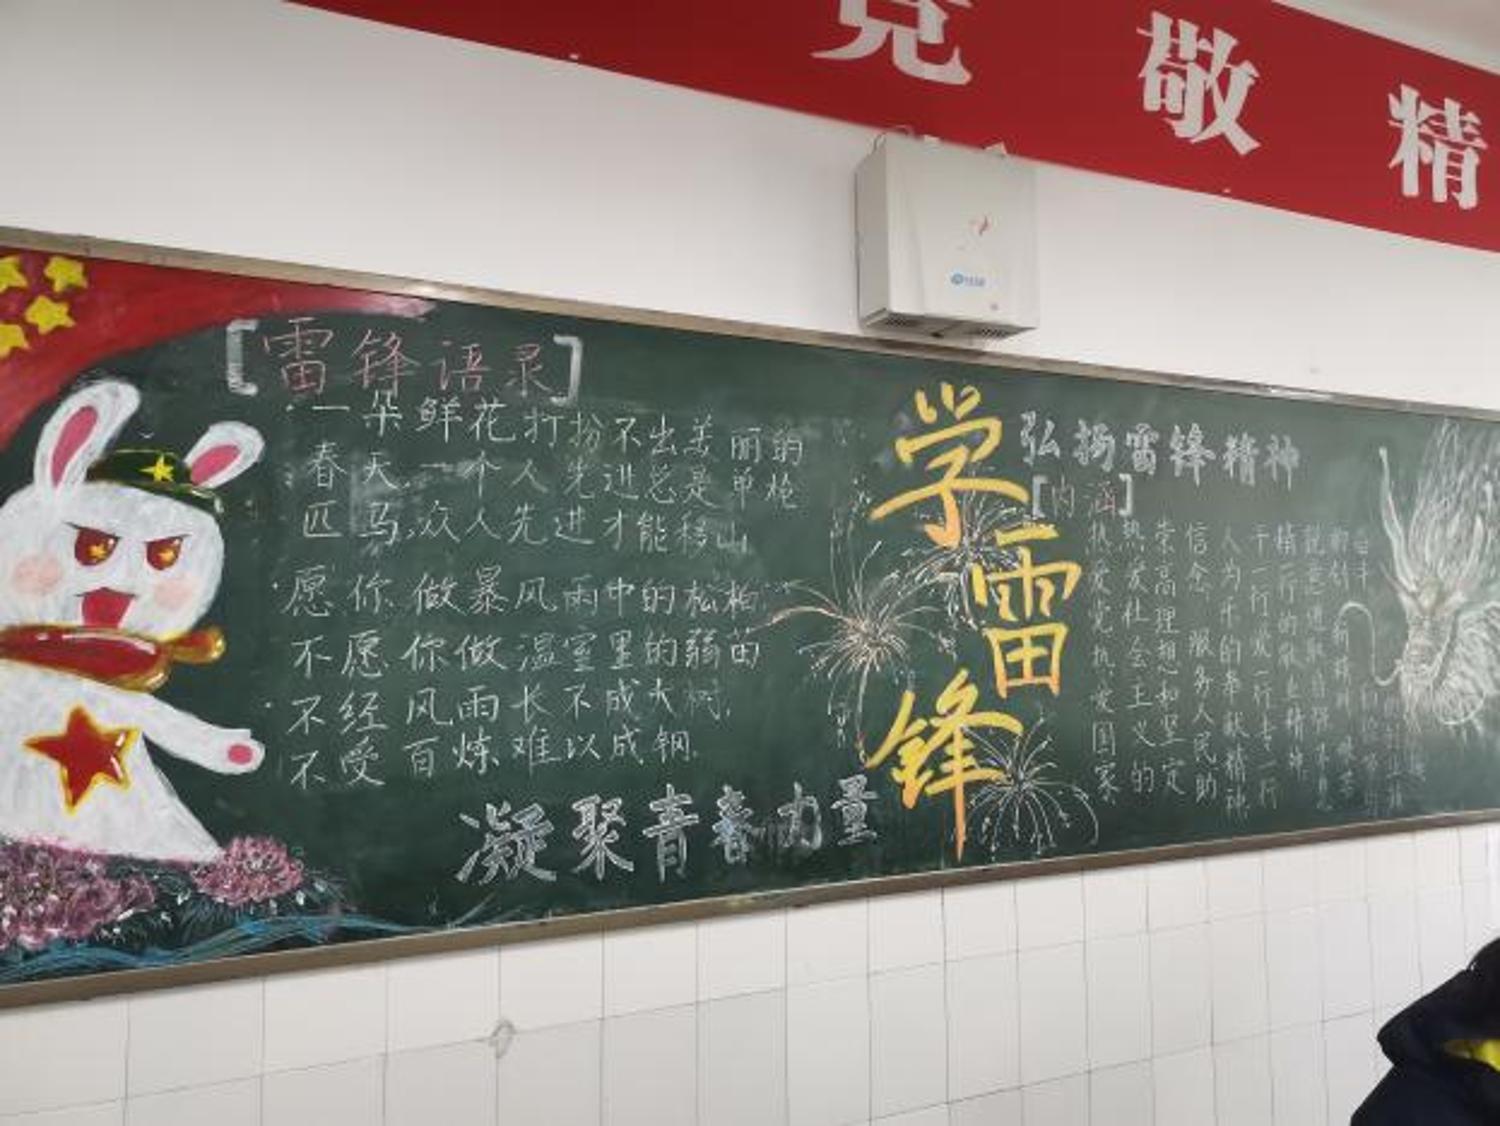 竞 敬 精
[雷锋语录]
·一朵鲜花打扮不出美丽的
春天,一个人先进总是单枪
匹马,众人先进才能移山
·愿你做暴风雨中的松柏
不愿你做温室里的弱苗
·不经风雨长不成大树,
不受百炼难以成钢.
凝聚青春力量
学
雷
锋
弘扬雷锋精神
[内涵]
热爱党热爱国家
热爱社会主义的
崇高理想和坚定
信念 服务人民助
人为乐的奉献精神
干一行爱一行专一行
精行的敬业精神